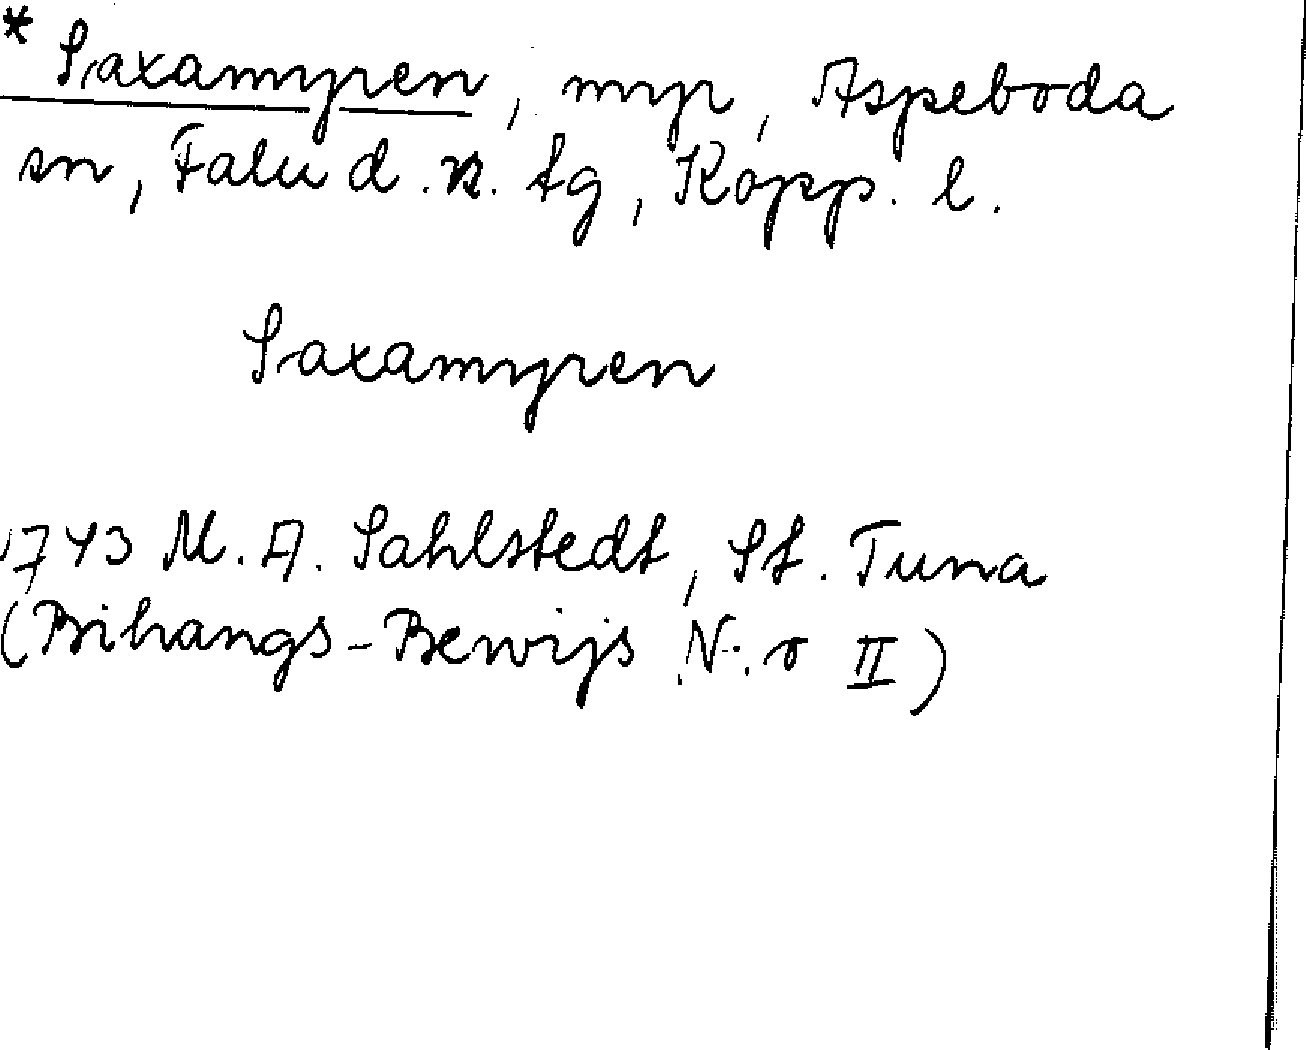 * Saxamyren, myr, Aspeboda
sn, Falu d.s. tg, Kopp. l.
Saxamyren
1743 M. A. Sahlstedt, St. Tuna
(Bihangs-Bewijs N.o II)